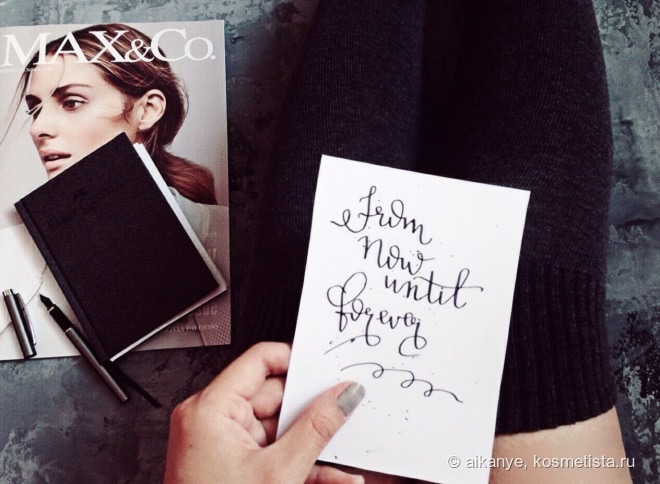 MAX&Co.
From
now
until
forever
© aikanye, kosmetista.ru